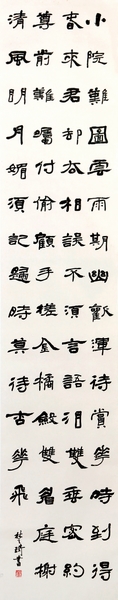 小院難圖雲雨期幽歡渾待賞華時到得
春來君却去相誤不須言語泪雙垂密約
尊前難囑付偷顧手搓金橘斂雙眉庭榭
清風明月媚須記歸時莫待杏華飛